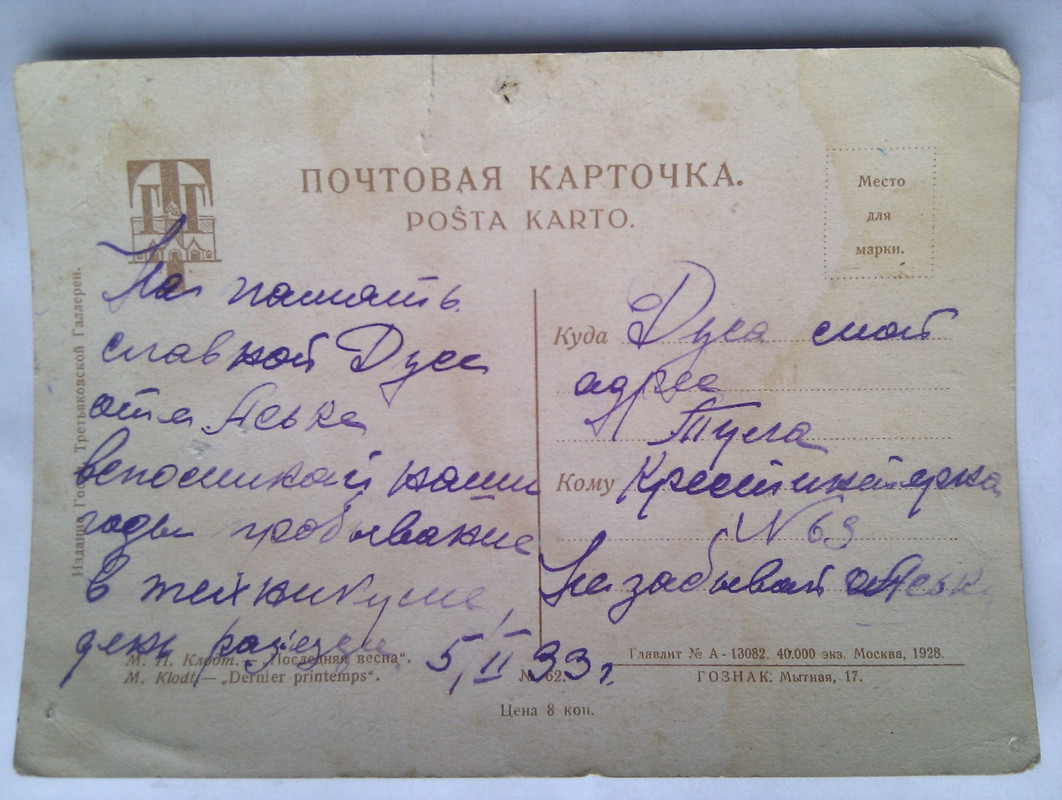 ПОЧТОВАЯ КАРТОЧКА.
POŜTA KARTO.
Место
для
марки.
ТГ
Издание Гос. Третьяковской Галлереи.
На память
славной Дуси
от Аськи
вспоминай наши
годы пробывание
в техникуме,
день разезда 5/II 33 г.
Куда Дуся мой
адрес
Тула
Кому
N 69
Не забывай Аську
М. П. Клодт.—„Последняя весна“.
M. Klodt.—„Dernier printemps“.
№ 62.
Цена 8 коп.
Главлит № А - 13082. 40.000 экз. Москва, 1928.
ГОЗНАК. Мытная, 17.